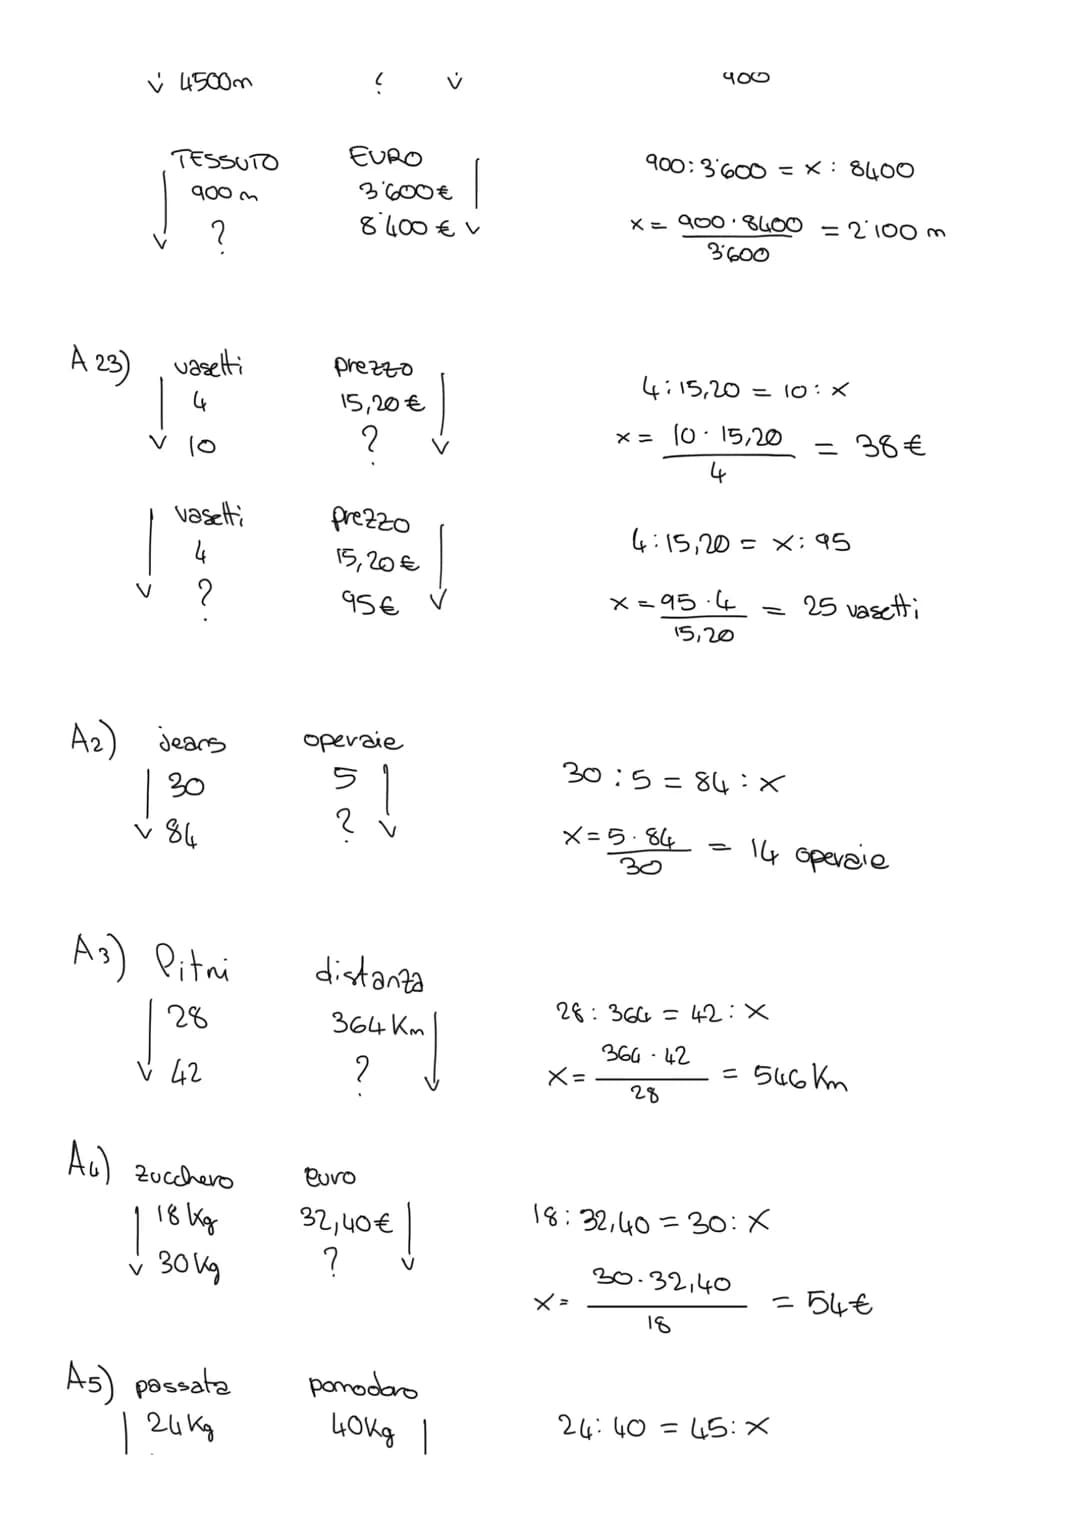 4500m ? 900
TESSUTO EURO
900 m 3'600€ 900:3'600 = x : 8400
? 8'400 € x = 900·8400 = 2'100 m
3'600
A 23) vasetti prezzo
4 15,20€ 4:15,20 = 10:x
10 ? x = 10·15,20 = 38€
4
vasetti prezzo
4 15,20€ 4:15,20 = x:95
? 95€ x = 95·4 = 25 vasetti
15,20
A2) jeans operaie
30 5 30:5 = 84:x
84 ? x = 5·84 = 14 operaie
30
A3) litri distanza
28 364 Km 28:364 = 42:x
42 ? x = 364·42 = 546 Km
28
A4) zucchero euro
18 Kg 32,40€ 18:32,40 = 30:x
30 Kg ? x = 30·32,40 = 54€
18
A5) passata pomodoro
24 Kg 40 Kg 24:40 = 45:x